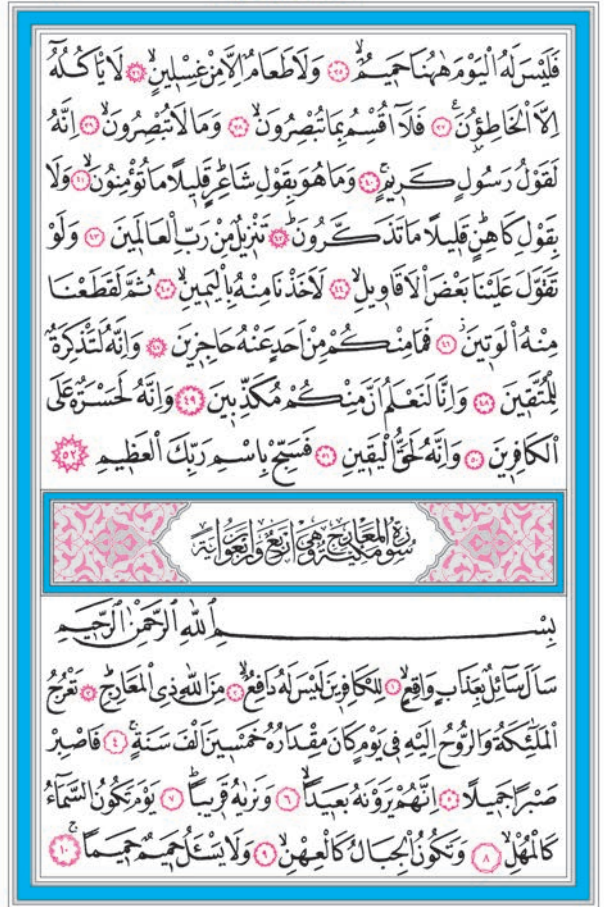 فَلَيْسَ لَهُ الْيَوْمَ هٰهُنَا حَمِيمٌۙ ﴿٣٥﴾ وَلَا طَعَامٌ اِلَّا مِنْ غِسْلِينٍۙ ﴿٣٦﴾ لَا يَأْكُلُهُٓ
اِلَّا الْخَاطِؤُ۫نَ۟ ﴿٣٧﴾ فَلَٓا اُقْسِمُ بِمَا تُبْصِرُونَۙ ﴿٣٨﴾ وَمَا لَا تُبْصِرُونَۙ ﴿٣٩﴾ اِنَّهُ
لَقَوْلُ رَسُولٍ كَرِيمٍۚ ﴿٤٠﴾ وَمَا هُوَ بِقَوْلِ شَاعِرٍۜ قَلِيلًا مَا تُؤْمِنُونَۙ ﴿٤١﴾ وَلَا
بِقَوْلِ كَاهِنٍۜ قَلِيلًا مَا تَذَكَّرُونَۜ ﴿٤٢﴾ تَنْزِيلٌ مِنْ رَبِّ الْعَالَمِينَ ﴿٤٣﴾ وَلَوْ
تَقَوَّلَ عَلَيْنَا بَعْضَ الْاَقَاوِيلِۙ ﴿٤٤﴾ لَاَخَذْنَا مِنْهُ بِالْيَمِينِۙ ﴿٤٥﴾ ثُمَّ لَقَطَعْنَا
مِنْهُ الْوَتِينَۘ ﴿٤٦﴾ فَمَا مِنْكُمْ مِنْ اَحَدٍ عَنْهُ حَاجِزِينَ ﴿٤٧﴾ وَاِنَّهُ لَتَذْكِرَةٌ
لِلْمُتَّقِينَ ﴿٤٨﴾ وَاِنَّا لَنَعْلَمُ اَنَّ مِنْكُمْ مُكَذِّبِينَ ﴿٤٩﴾ وَاِنَّهُ لَحَسْرَةٌ عَلَى
الْكَافِرِينَ ﴿٥٠﴾ وَاِنَّهُ لَحَقُّ الْيَقِينِ ﴿٥١﴾ فَسَبِّحْ بِاسْمِ رَبِّكَ الْعَظِيمِ ﴿٥٢﴾
سُورَةُ الْمَعَارِجِ مَكِّيَّةٌ وَهِيَ اَرْبَعٌ وَاَرْبَعُونَ اٰيَةً
بِسْمِ اللّٰهِ الرَّحْمٰنِ الرَّحِيمِ
سَاَلَ سَٓائِلٌ بِعَذَابٍ وَاقِعٍۙ ﴿١﴾ لِلْكَافِرِينَ لَيْسَ لَهُ دَافِعٌۙ ﴿٢﴾ مِنَ اللّٰهِ ذِي الْمَعَارِجِۜ ﴿٣﴾ تَعْرُجُ
الْمَلٰٓئِكَةُ وَالرُّوحُ اِلَيْهِ فِي يَوْمٍ كَانَ مِقْدَارُهُ خَمْسِينَ اَلْفَ سَنَةٍۚ ﴿٤﴾ فَاصْبِرْ
صَبْرًا جَمِيلًا ﴿٥﴾ اِنَّهُمْ يَرَوْنَهُ بَعِيدًاۙ ﴿٦﴾ وَنَرٰيهُ قَرِيبًاۜ ﴿٧﴾ يَوْمَ تَكُونُ السَّمَٓاءُ
كَالْمُهْلِۙ ﴿٨﴾ وَتَكُونُ الْجِبَالُ كَالْعِهْنِۙ ﴿٩﴾ وَلَا يَسْـَٔلُ حَمِيمٌ حَمِيمًاۚ ﴿١٠﴾